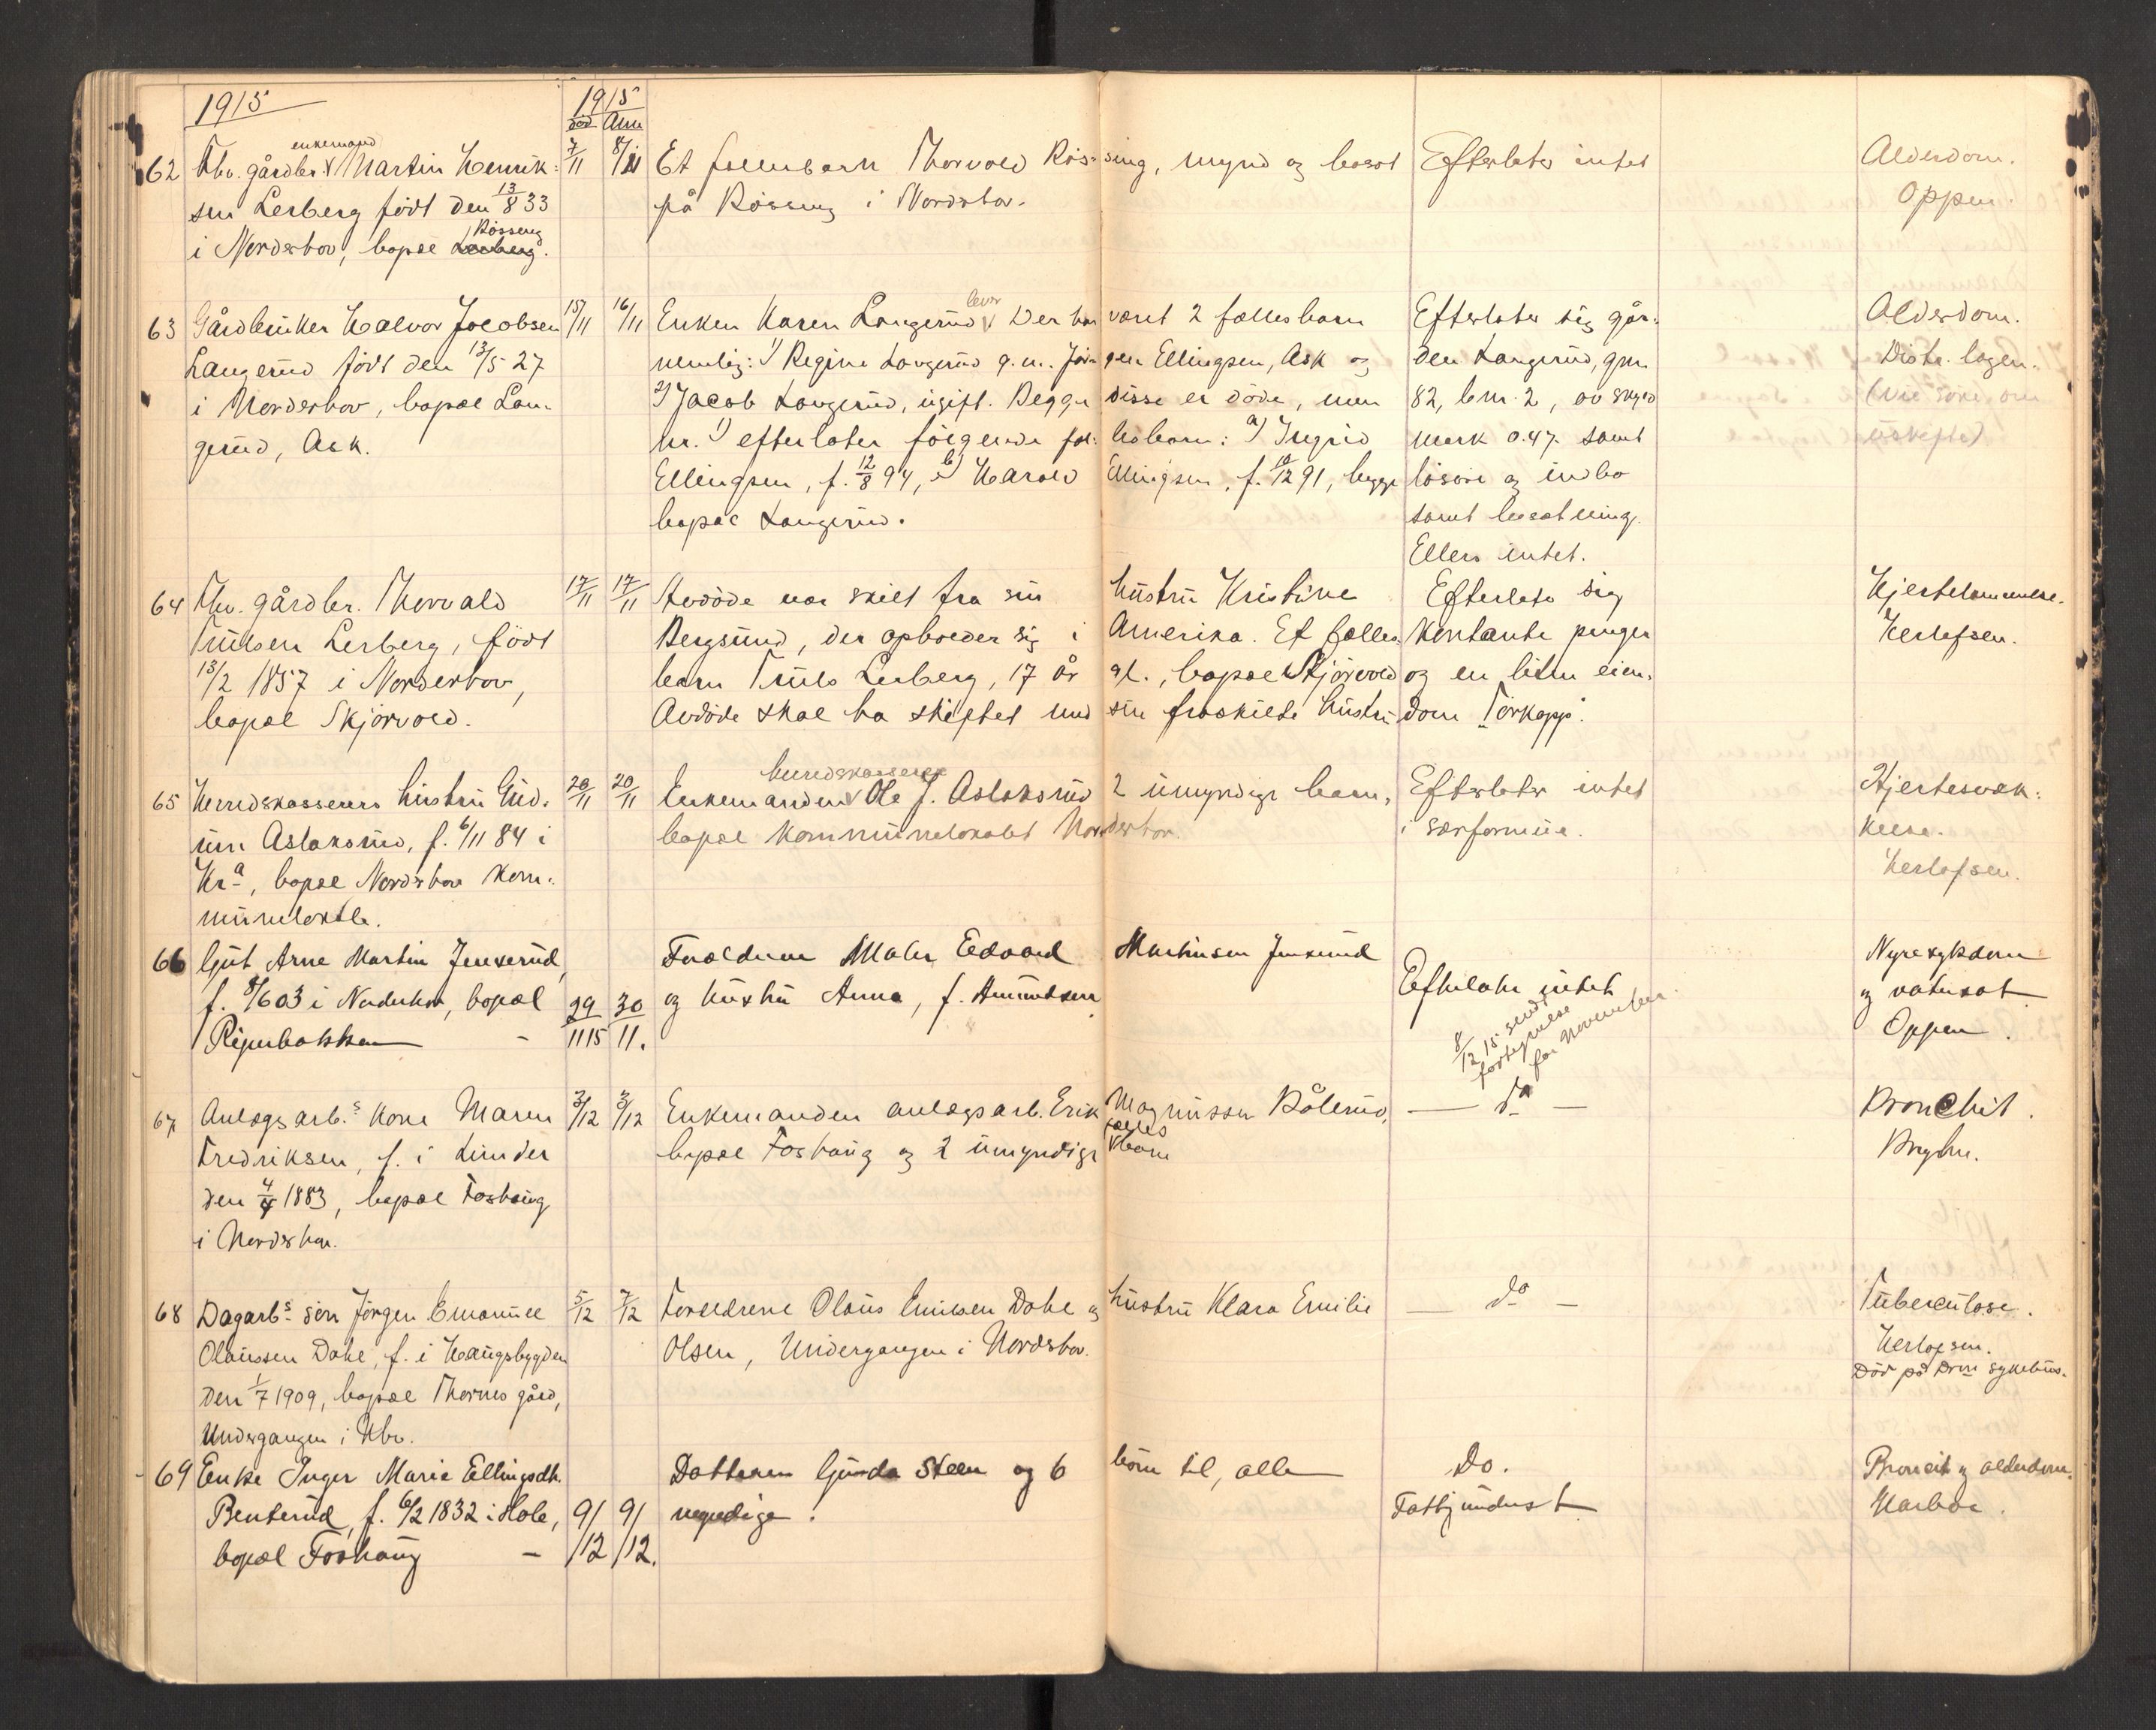 1915
1915
død Anm
62 Fhv. gårdbr. enkemand Martin Henrik-
sen Lerberg født den 13/8 33
i Norderhov, bopæl Lerberg Røsseng.
7/11 8/11
Et fællesbarn Thorvald Røssing, mynd og bosat
på Røsseng i Norderhov.
Efterlater intet
Alderdom.
Oppen.
63 Gårdbruker Halvor Jacobsen
Langerud født den 13/5 27
i Norderhov, bopæl Lan-
gerud, Ask.
15/11 16/11
Enken Karen Langerud lever Der har været 2 fællesbarn
nemlig: 1) Regine Langerud g.m. Jørgen Ellingsen, Ask og
2) Jacob Langerud, ugift. Begge disse er døde, men
nr. 1) efterlater følgende fællesbarn: a) Ingrid
Ellingsen, f. 12/8 94, b) Harald Ellingsen, f. 10/12 91, begge
bopæl Langerud.
Efterlater sig går-
den Langerud, gnr.
82, bnr. 2, av skyld
mark 0.47 samt
løsøre og indbo
samt besætning.
Ellers intet.
Alderdom.
Distr. lægen.
64 Fhv. gårdbr. Thorvald
Trulsen Lerberg, født
13/2 1857 i Norderhov,
bopæl Skjørvold.
17/11 17/11
Avdøde var skilt fra sin hustru Kristine
Bergsund, der opholder sig i Amerika. Et fælles
barn Truls Lerberg, 17 år gl., bopæl Skjørvold
Avdøde skal ha skiftet med sin fraskilte hustru
Efterlater sig
kontante penger
og en liten eien-
dom "Tørkopp".
Hjertelammelse.
Herlofsen.
65 Herredskasserers hustru Gud-
run Aslaksrud, f. 6/11 84 i
Kr.a, bopæl Norderhov kom-
munelokale.
20/11 20/11
Enkemanden herredskasserer Ole J. Aslaksrud 2 umyndige barn,
bopæl kommunelokalet Norderhov.
Efterlater intet
i særformue.
Hjertesvæk-
kelse.
Herlofsen.
66 Gut Arne Martin Jenserud,
f. 8/6 03 i Norderhov, bopæl
Riperbakken
29/11 15 30/11.
Forældrene Maler Edvard Martinsen Jenserud
og hustru Anna, f. Amundsen
Efterlater intet
8/12 15 sendt
fortegnelse
for November.
Nyresykdom
og vatersot
Oppen.
67 Anlægsarb.s kone Maren
Fredriksen, f. i Lunder
den 4/4 1883, bopæl Foshaug
i Norderhov.
3/12 3/12
Enkemanden anlægsarb. Erik Magnussen Bålerud,
bopæl Foshaug og 2 umyndige fælles barn
— do —
Bronchit.
Bryhn.
68 Dagarb.s søn Jørgen Emanuel
Olaussen Dahl, f. i Haugsbygden
den 1/7 1909, bopæl Thornes gård,
Undergangen i Nhv.
5/12 7/12
Forældrene Olaus Dahl og hustru Klara Emilie
Olsen, Undergangen i Norderhov.
— do —
Tuberculose.
Herlofsen.
Død på Drm sykehus.
69 Enke Inger Marie Ellingsdtr.
Benterud, f. 6/2 1832 i Hole,
bopæl Foshaug
9/12 9/12.
Datteren Gunda Steen og 6 børn til, alle
myndige.
Do.
Fattigunderst
Broncit og alderdom.
Harboe.